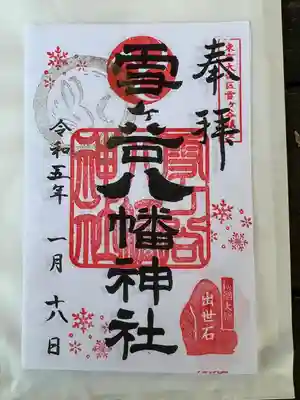 奉拝
東京大田区雪ヶ谷
雪ヶ谷八幡神社
雪ヶ谷
八幡
神社
出世石
令和五年 一月 十八日